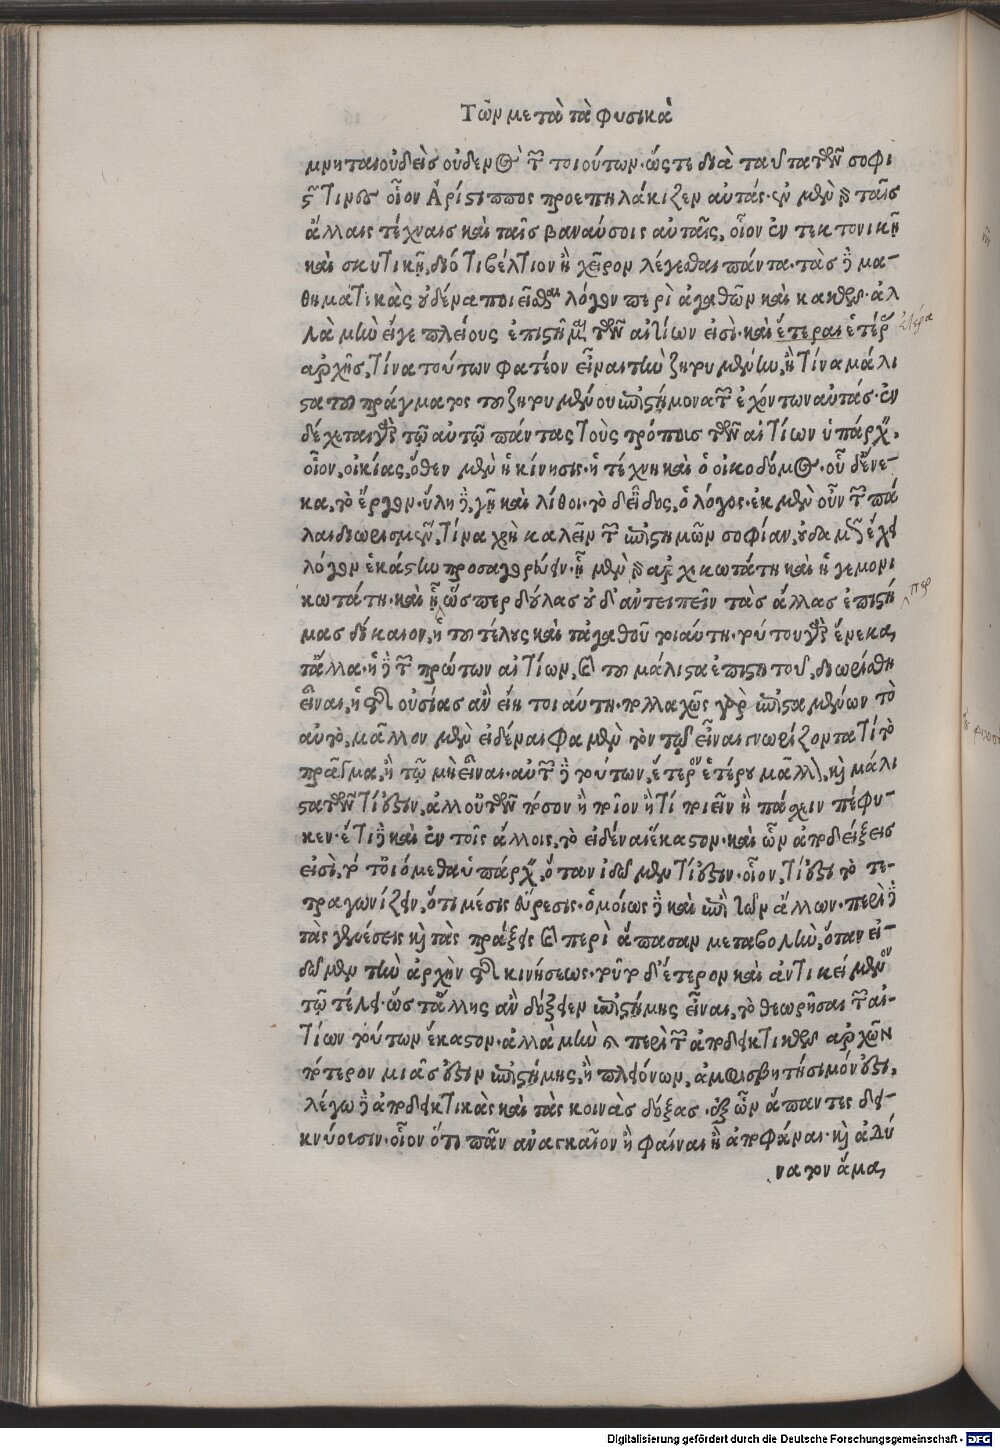 Τῶν μετὰ τὰ φυσικὰ
μνηται οὐδεὶς οὐδενὸς τῶν τοιούτων. ὥστε διὰ ταῦτα τῶν σοφι
στῶν τινες οἷον Ἀρίστιππος προεπηλάκιζεν αὐτάς. ἐν μὲν γὰρ ταῖς
ἄλλαις τέχναις καὶ ταῖς βαναύσοις αὐταῖς, οἷον ἐν τεκτονικῇ
καὶ σκυτικῇ, διότι βέλτιον ἢ χεῖρον λέγεσθαι πάντα. τὰς δὲ μα-
θηματικὰς οὐδένα ποιεῖσθαι λόγον περὶ ἀγαθῶν καὶ κακῶν. ἀλ
λὰ μὴν εἴγε πλείους ἐπιστῆμαι τῶν αἰτίων εἰσὶ. καὶ ἕτεραι ἑτέρας
ἀρχῆς, τίνα τούτων φατέον εἶναι τὴν ζητουμένην, ἢ τίνα μάλι
στα τοῦ πράγματος τοῦ ζητουμένου ἐπιστήμονα τῶν ἐχόντων αὐτάς. ἐν
δέχεται γὰρ τῷ αὐτῷ πάντας τοὺς τρόπους τῶν αἰτίων ὑπάρχειν,
οἷον, οἰκίας, ὅθεν μὲν ἡ κίνησις. ἡ τέχνη καὶ ὁ οἰκοδόμος. οὗ δ' ἕνε-
κα, τὸ ἔργον. ὕλη δὲ, γῆ καὶ λίθοι. τὸ δ' εἶδος, ὁ λόγος. ἐκ μὲν οὖν τῶν πά
λαι διωρισμένων, τίνα χρὴ καλεῖν τῶν ἐπιστημῶν σοφίαν, ἔχει
λόγον ἑκάστην προσαγορεύειν. ᾗ μὲν γὰρ ἀρχικωτάτη καὶ ἡγεμονι
κωτάτη. καὶ ᾗ ὥσπερ δούλας οὐδ' ἀντειπεῖν τὰς ἄλλας ἐπιστή
μας δίκαιον, ἡ τοῦ τέλους καὶ τἀγαθοῦ τοιαύτη. τούτου γὰρ ἕνεκα,
τἄλλα. ᾗ δὲ τῶν πρώτων αἰτίων, καὶ τοῦ μάλιστα ἐπιστητοῦ, διωρίσθη
εἶναι, ἡ τῆς οὐσίας ἂν εἴη τοιαύτη. πολλαχῶς γὰρ ἐπισταμένων τὸ
αὐτὸ, μᾶλλον μὲν εἰδέναι φαμὲν τὸν τῷ εἶναι γνωρίζοντα τί τὸ
πρᾶγμα, ἢ τῷ μὴ εἶναι. αὐτῶν δὲ τούτων, ἕτερον ἑτέρου μᾶλλον, καὶ μάλι
στα τὸν τί ἐστιν, ἀλλ' οὐ τὸν πόσον ἢ ποῖον ἢ τί ποιεῖν ἢ πάσχειν πέφυ-
κεν. ἔτι δὲ καὶ ἐν τοῖς ἄλλοις, τὸ εἰδέναι ἕκαστον. καὶ ὧν ἀποδείξεις
εἰσὶ, τότ' οἰόμεθα ὑπάρχειν, ὅταν ἰδῶμεν τί ἐστιν. οἷον, τί ἐστι τὸ τε-
τραγωνίζειν, ὅτι μέσης εὕρεσις. ὁμοίως δὲ καὶ ἐπὶ τῶν ἄλλων. περὶ δὲ
τὰς γενέσεις καὶ τὰς πράξεις καὶ περὶ ἅπασαν μεταβολὴν, ὅταν εἰ-
δῶμεν τὴν ἀρχὴν τῆς κινήσεως. τοῦτο δ' ἕτερον καὶ ἀντικείμενον
τῷ τέλει. ὥστ' ἄλλης ἂν δόξειεν ἐπιστήμης εἶναι, τὸ θεωρῆσαι τῶν αἰ-
τίων τούτων ἕκαστον. ἀλλὰ μὴν καὶ περὶ τῶν ἀποδεικτικῶν ἀρχῶν
πότερον μιᾶς ἐστιν ἐπιστήμης, ἢ πλειόνων, ἀμφισβητήσιμόν ἐστι,
λέγω δὲ ἀποδεικτικὰς καὶ τὰς κοινὰς δόξας. ἐξ ὧν ἅπαντες δει-
κνύουσιν. οἷον ὅτι πᾶν ἀναγκαῖον ἢ φάναι ἢ ἀποφάναι. καὶ ἀδύ
νατον ἅμα,
ἑτέρα
περ
Digitalisierung gefördert durch die Deutsche Forschungsgemeinschaft - DFG